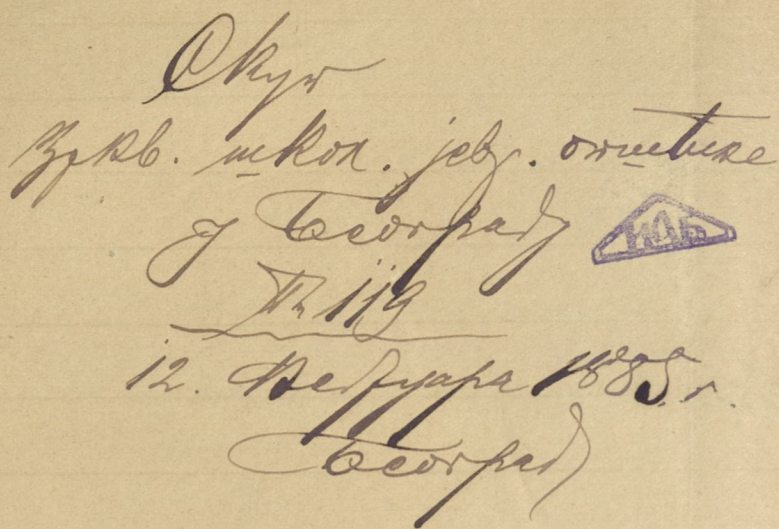 Скуп
Зркв. школ. јевр. општине
у Београду
ИАБ
№ 119
12. Фебруара 1885 г.
Београд